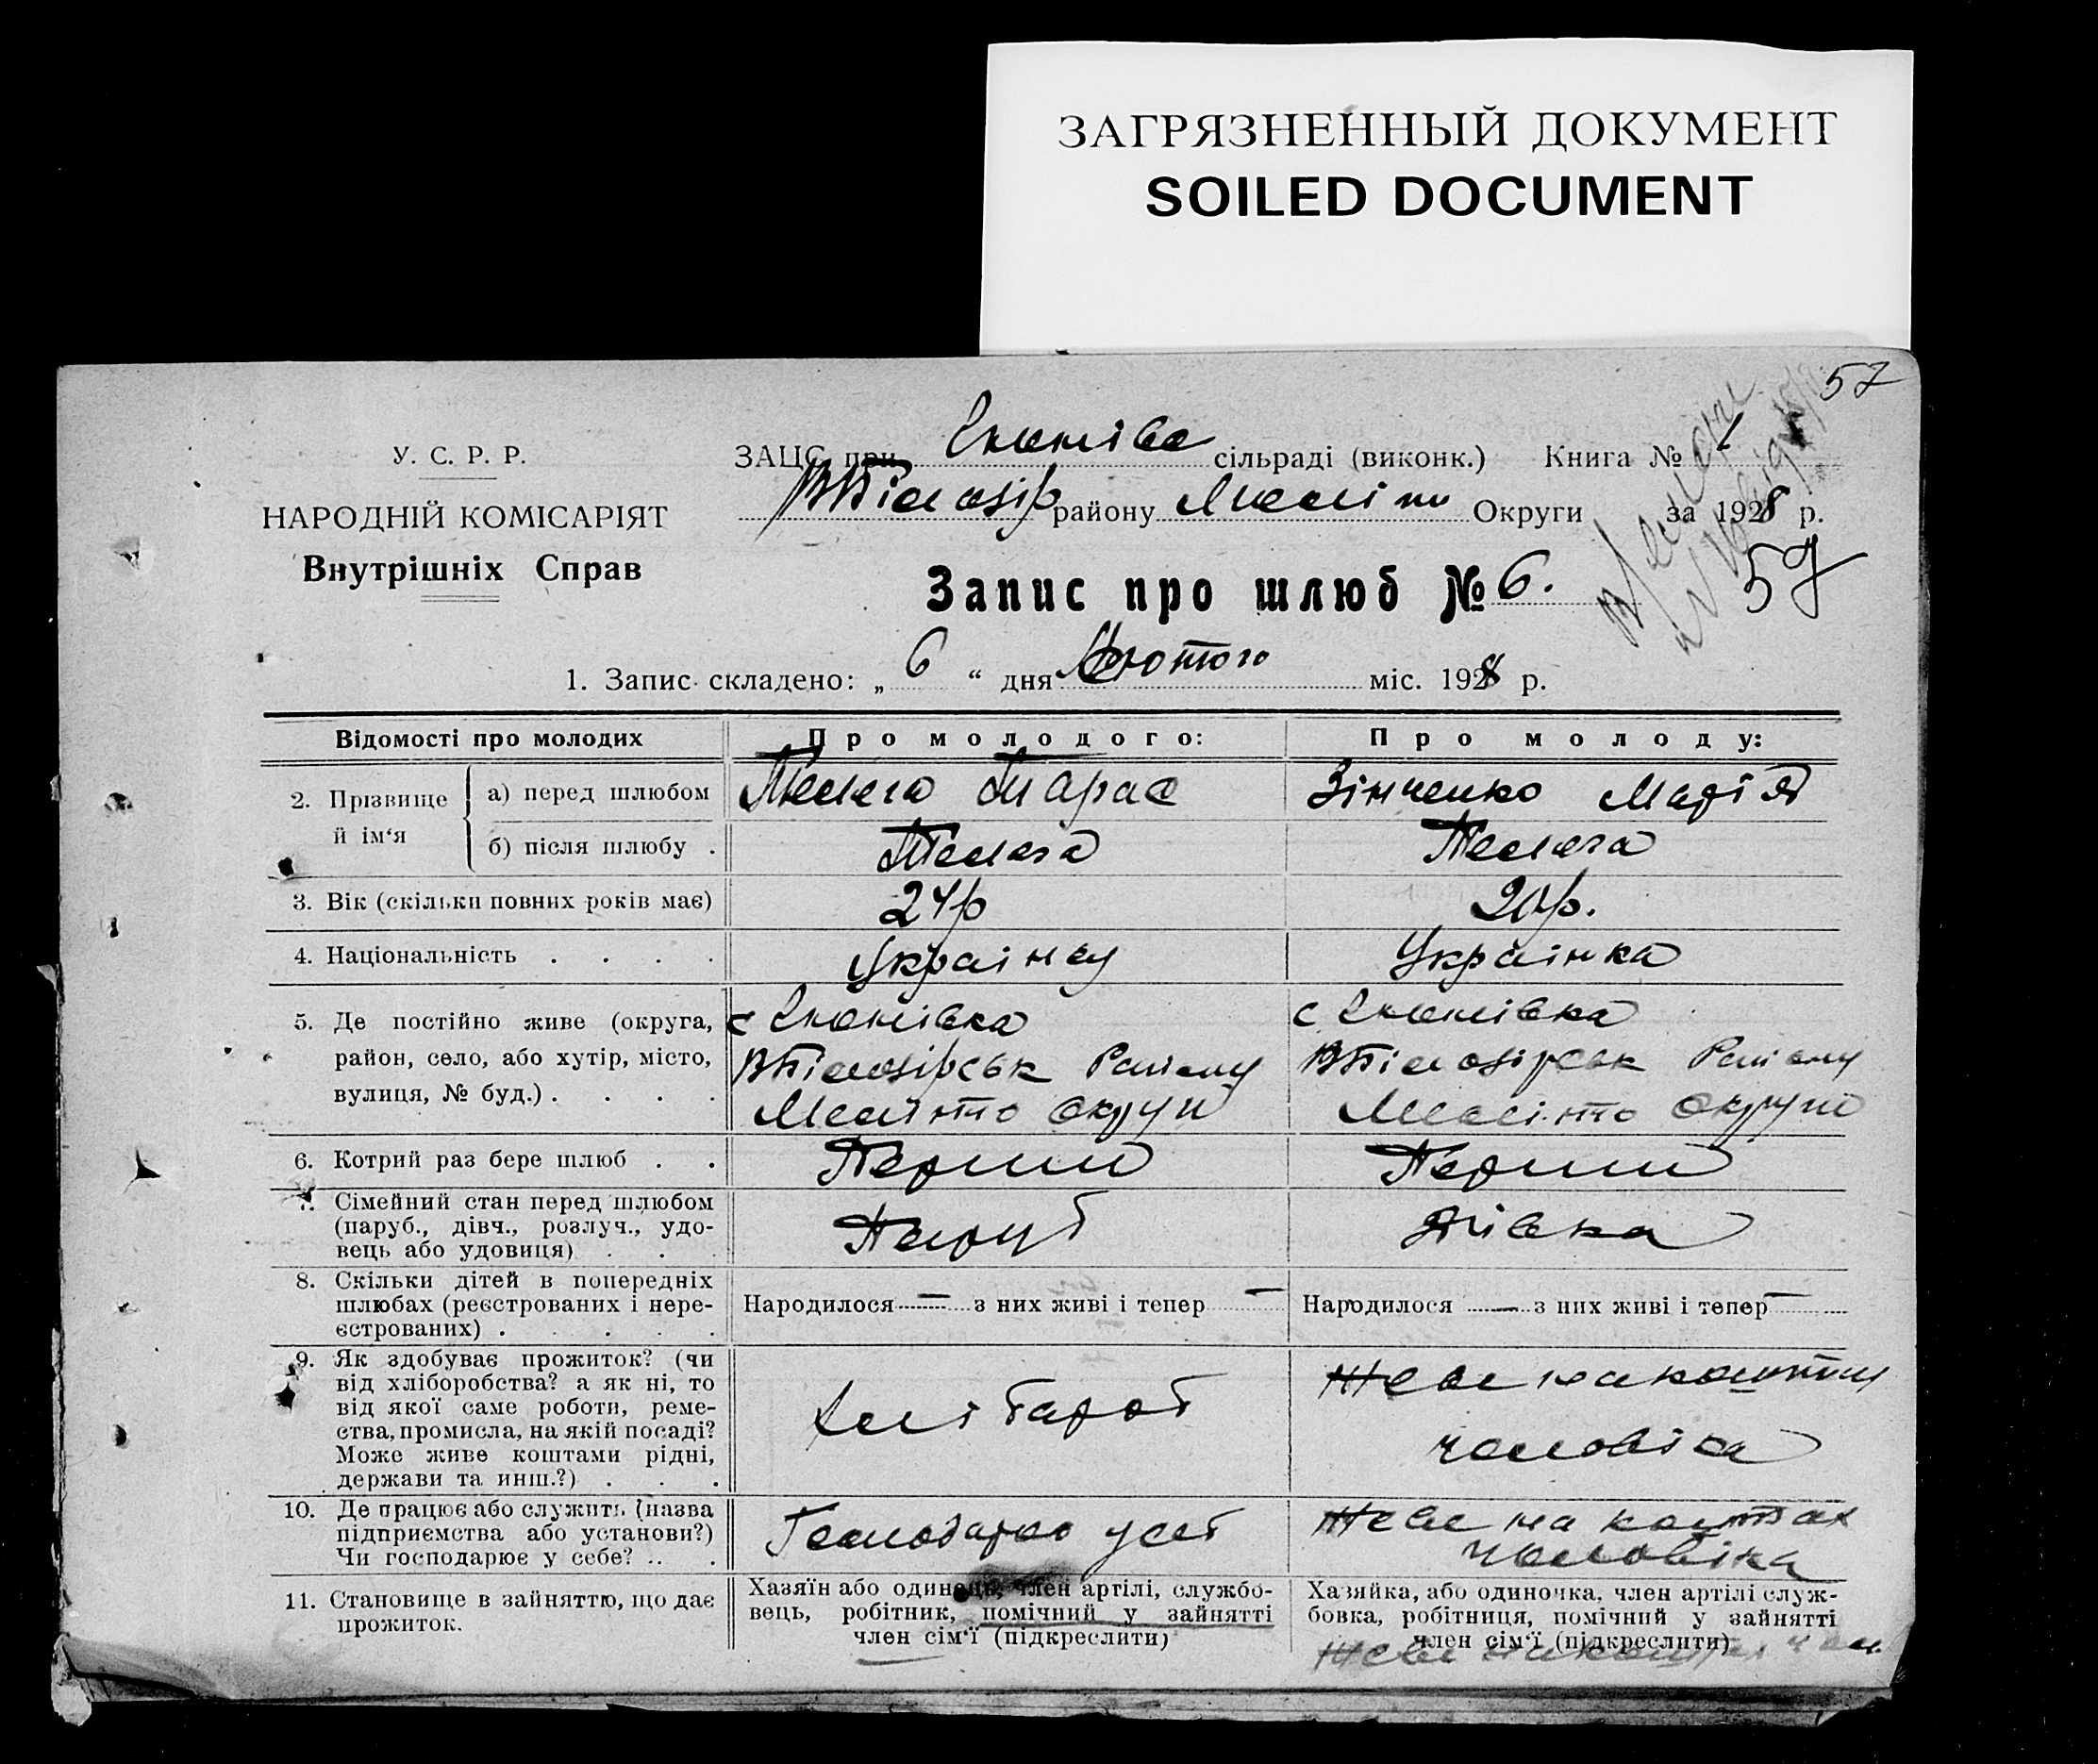 ЗАГРЯЗНЕННЫЙ ДОКУМЕНТ
SOILED DOCUMENT
57
У. С. Р. Р.
НАРОДНІЙ КОМІСАРІЯТ
Внутрішніх Справ
ЗАЦС при сільраді (виконк.) Книга № 1
ВБілозір району Округи за 1928 р.
Запис про шлюб № 6.
57
1. Запис складено: „ 6 “ дня Лютого міс. 1928 р.
Відомості про молодих Про молодого: Про молоду:
2. Прізвище й ім‘я а) перед шлюбом Тарас Зінченко Марія
б) після шлюбу .
3. Вік (скільки повних років має) 24р 20р.
4. Національність . . . . Украінец Украінка
5. Де постійно живе (округа,
район, село, або хутір, місто,
вулиця, № буд.) . . . .
с
ВБілозірськ Району
округи
с
ВБілозірськ Району
округи
6. Котрий раз бере шлюб . . Перший Перший
7. Сімейний стан перед шлюбом
(паруб., дівч., розлуч., удо-
вець або удовиця) . .
Паруб
Дівка
8. Скільки дітей в попередніх
шлюбах (реєстрованих і нере-
єстрованих) . . . . .
Народилося — з них живі і тепер —
Народилося — з них живі і тепер —
9. Як здобуває прожиток? (чи
від хліборобства? а як ні, то
від якої саме роботи, реме-
ства, промисла, на якій посаді?
Може живе коштами рідні,
держави та инш.?) . . .
Хлібароб
Живе на кошти
чоловіка
10. Де працює або служить (назва
підприємства або установи?)
Чи господарює у себе? .. .
Живе на коштах
чоловіка
11. Становище в зайняттю, що дає
прожиток.
Хазяїн або одинець, член артілі, службо-
вець, робітник, помічний у зайнятті
член сім‘ї (підкреслити)
Хазяйка, або одиночка, член артілі служ-
бовка, робітниця, помічний у зайнятті
член сім‘ї (підкреслити)
Живе на коштах чол.